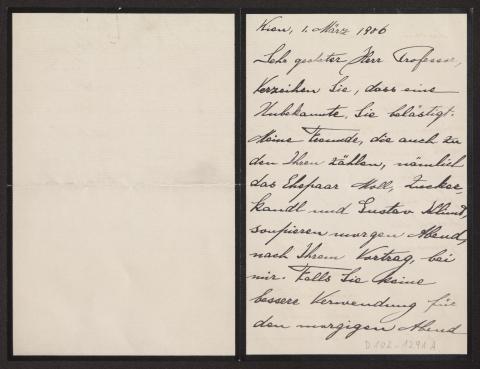 Wien, 1. März 1906
Sehr geehrter Herr Professor,
Verzeihen Sie, dass eine
Unbekannte, Sie belästigt.
Meine Freunde, die auch zu
den Ihren zählen, nämlich
das Ehepaar Moll, Zucker-
kandl und Gustav Klimt,
soupieren morgen Abend,
nach Ihrem Vortrag, bei
mir. Falls Sie keine
bessere Verwendung für
den morgigen Abend
D.102-1291 A